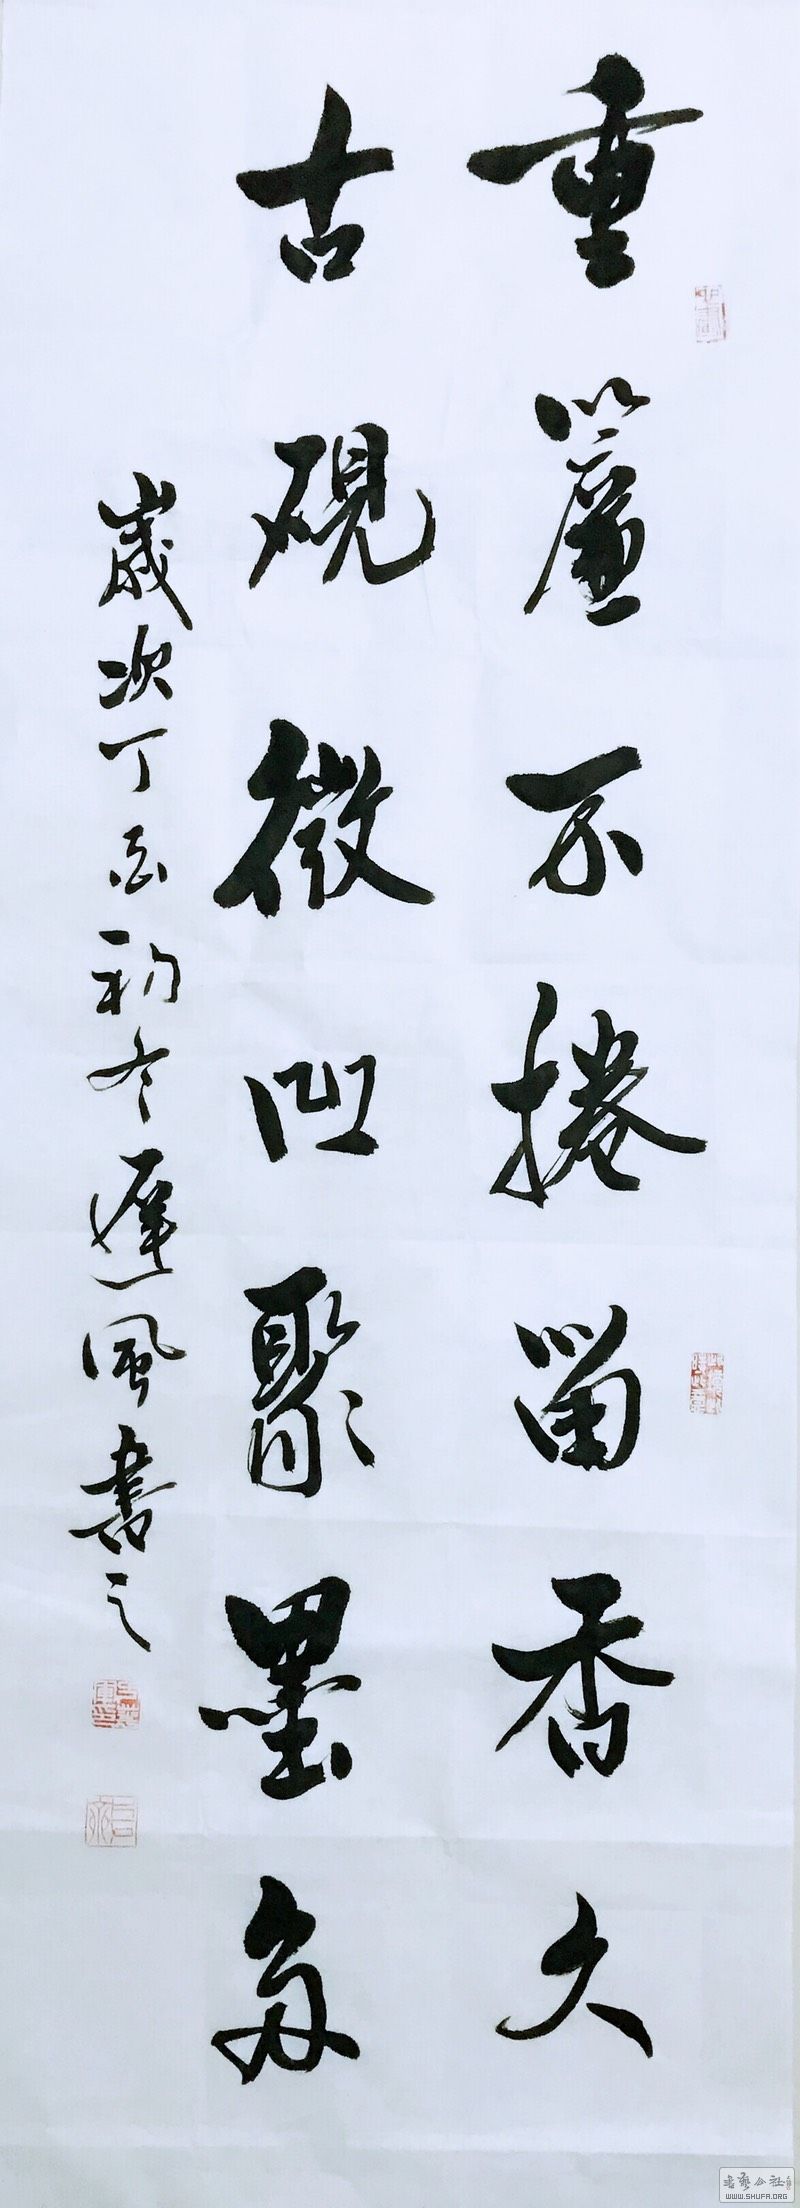 重簾不捲留香久
古硯微凹聚墨多
歲次丁酉初冬遲風書之
書藝公社
WWW.SHUFA.ORG